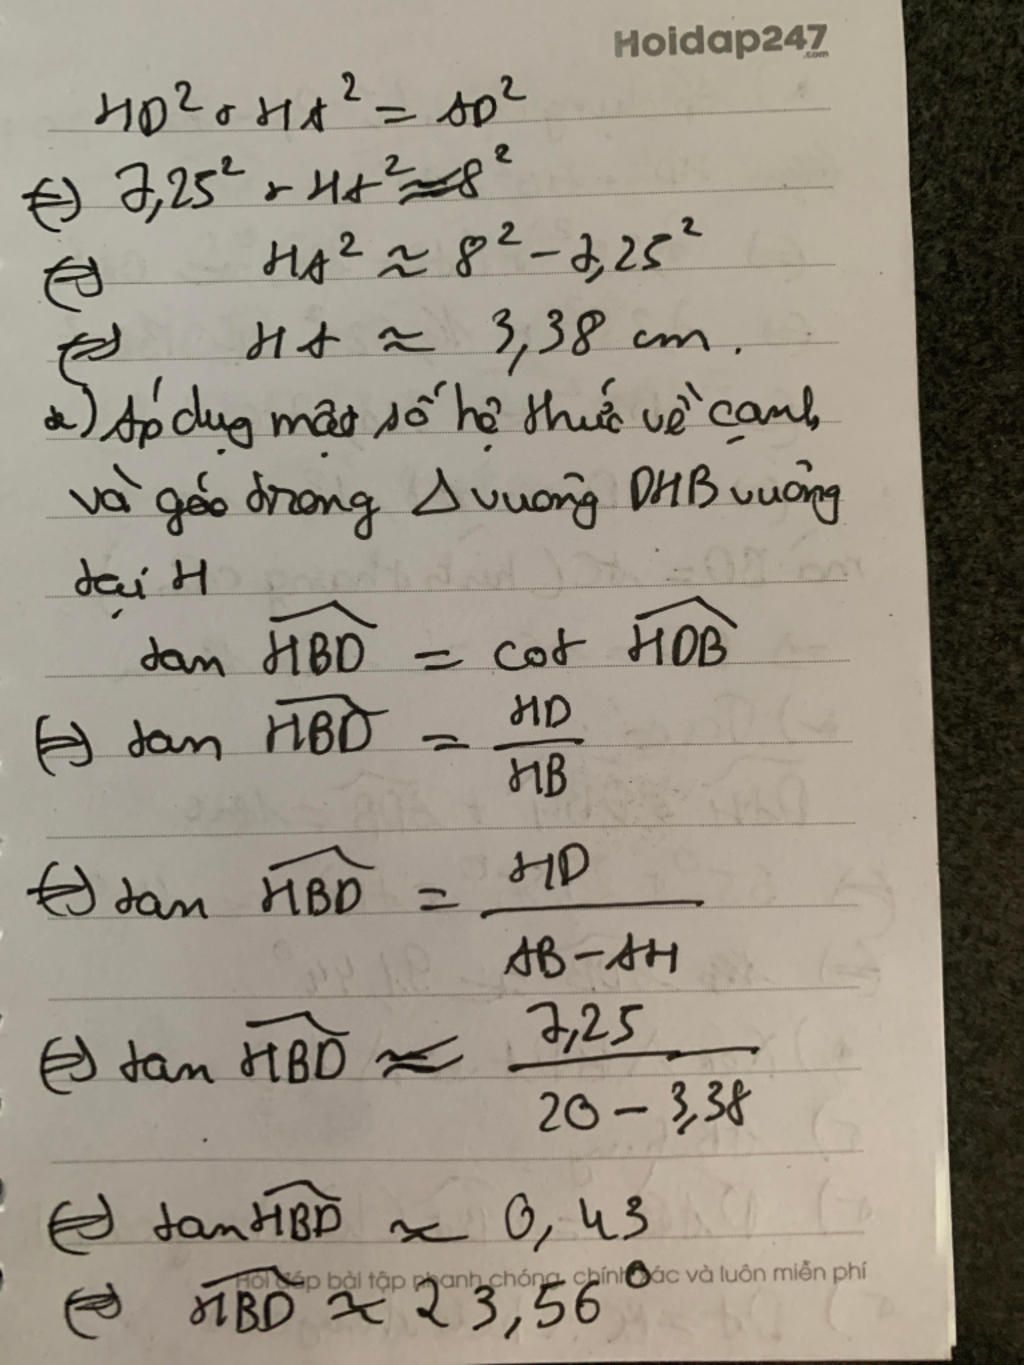 Hoidap247
.com
HD² + HA² = AD²
⇔ 7,25² + HA² ≈ 8²
⇔ HA² ≈ 8² - 7,25²
⇔ HA ≈ 3,38 cm.
*) Áp dụg một số hệ thức về cạnh
và góc trong Δ vuông DHB vuông
tại H
tan HBD = cot HDB
⇔ tan HBD = HD
HB
⇔ tan HBD = HD
AB - AH
⇔ tan HBD ≈ 7,25
20 - 3,38
⇔ tan HBD ≈ 0,43
Hỏi đáp bài tập nhanh chóng, chính xác và luôn miễn phí
⇔ HBD ≈ 23,56°